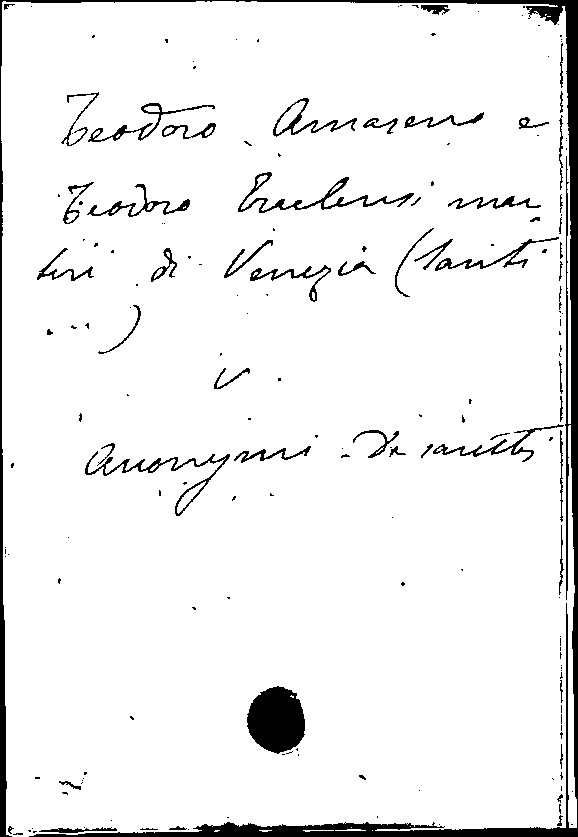 Teodoro Amaseno e
Teodoro Eraclensi mar-
tiri di Venezia (Santi
...)
V.
Anonymi - De sanctis